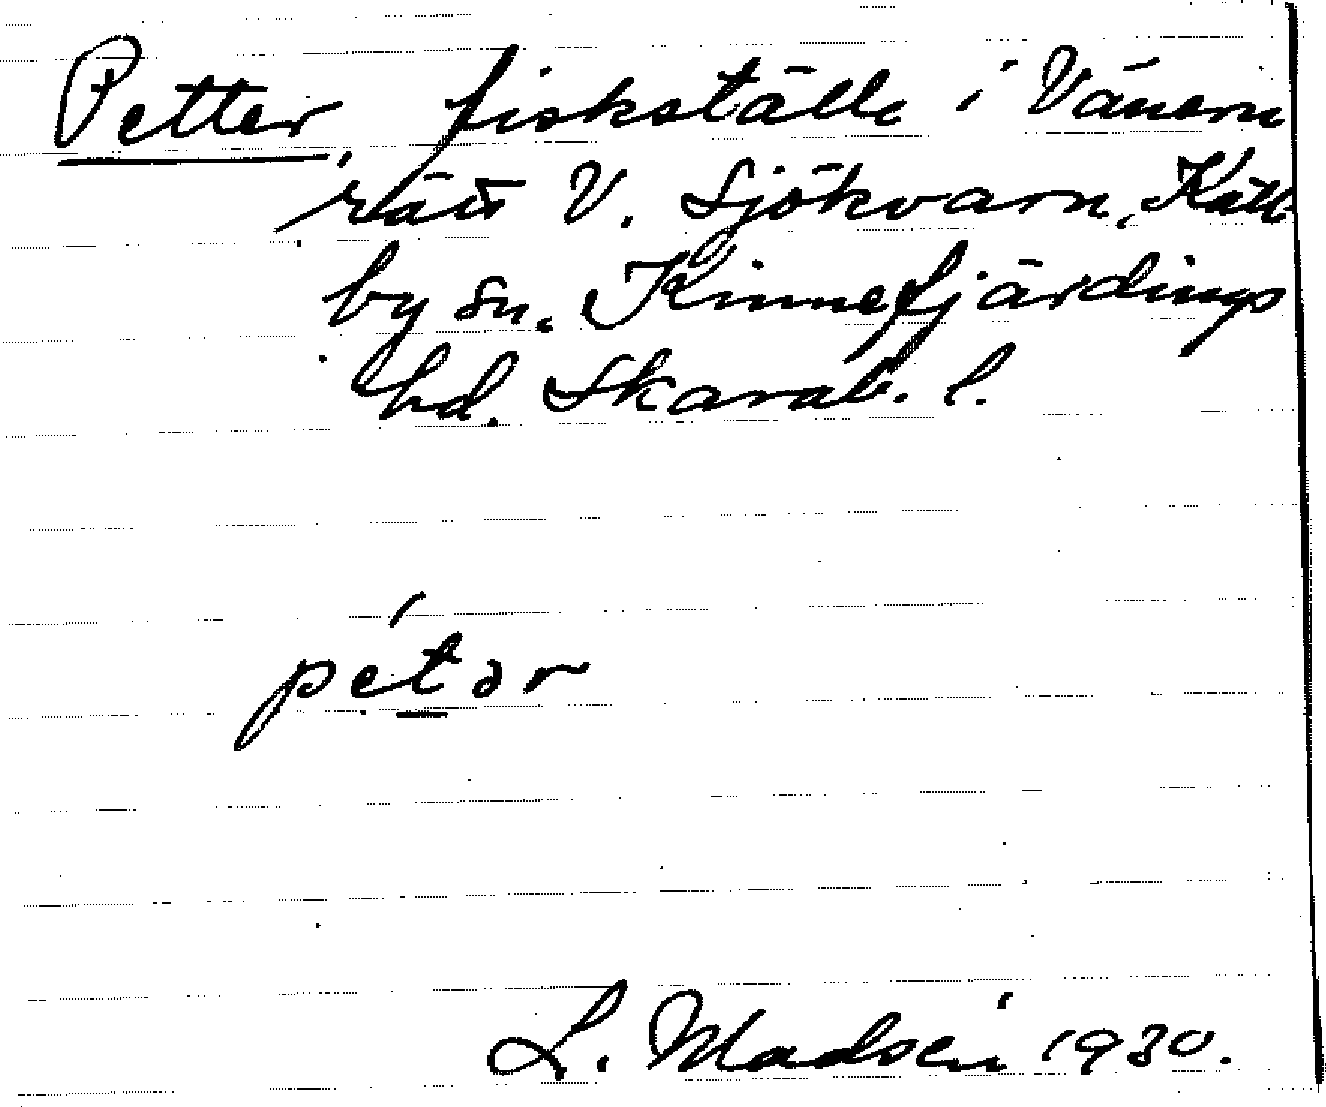 Petter, fiskställe i Vänern
rätt V. Sjökvarn, Käll-
by sn. Kinnefjärdings
hd. Skarab. l.
pétər
L. Madsén 1930.